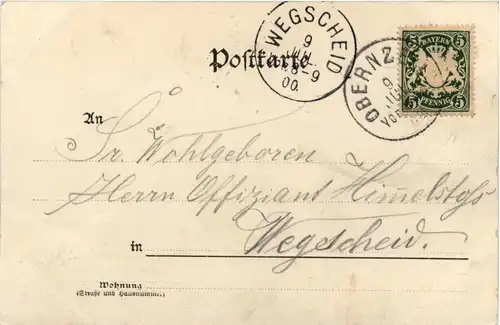 WEGSCHEID
9
JUN.
8-9
00.
Postkarte
OBERNZ
9
JUN
Vor
5 BAYERN 5
5 PFENNIG 5
An
Sr. Wohlgeboren
Herrn Offiziant
in Wegscheid.
Wohnung
(Straße und Hausnummer)